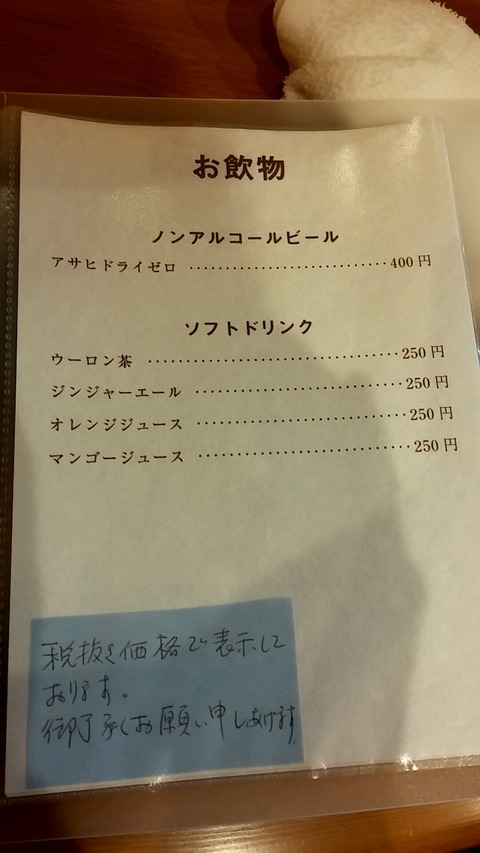 お飲物
ノンアルコールビール
アサヒドライゼロ ････････････････････････････400円
ソフトドリンク
ウーロン茶 ･･･････････････････････････････････250円
ジンジャーエール ･････････････････････････････250円
オレンジジュース ･････････････････････････････250円
マンゴージュース ･････････････････････････････250円
税抜き価格で表示して
おります。
御了承くお願い申しあげます